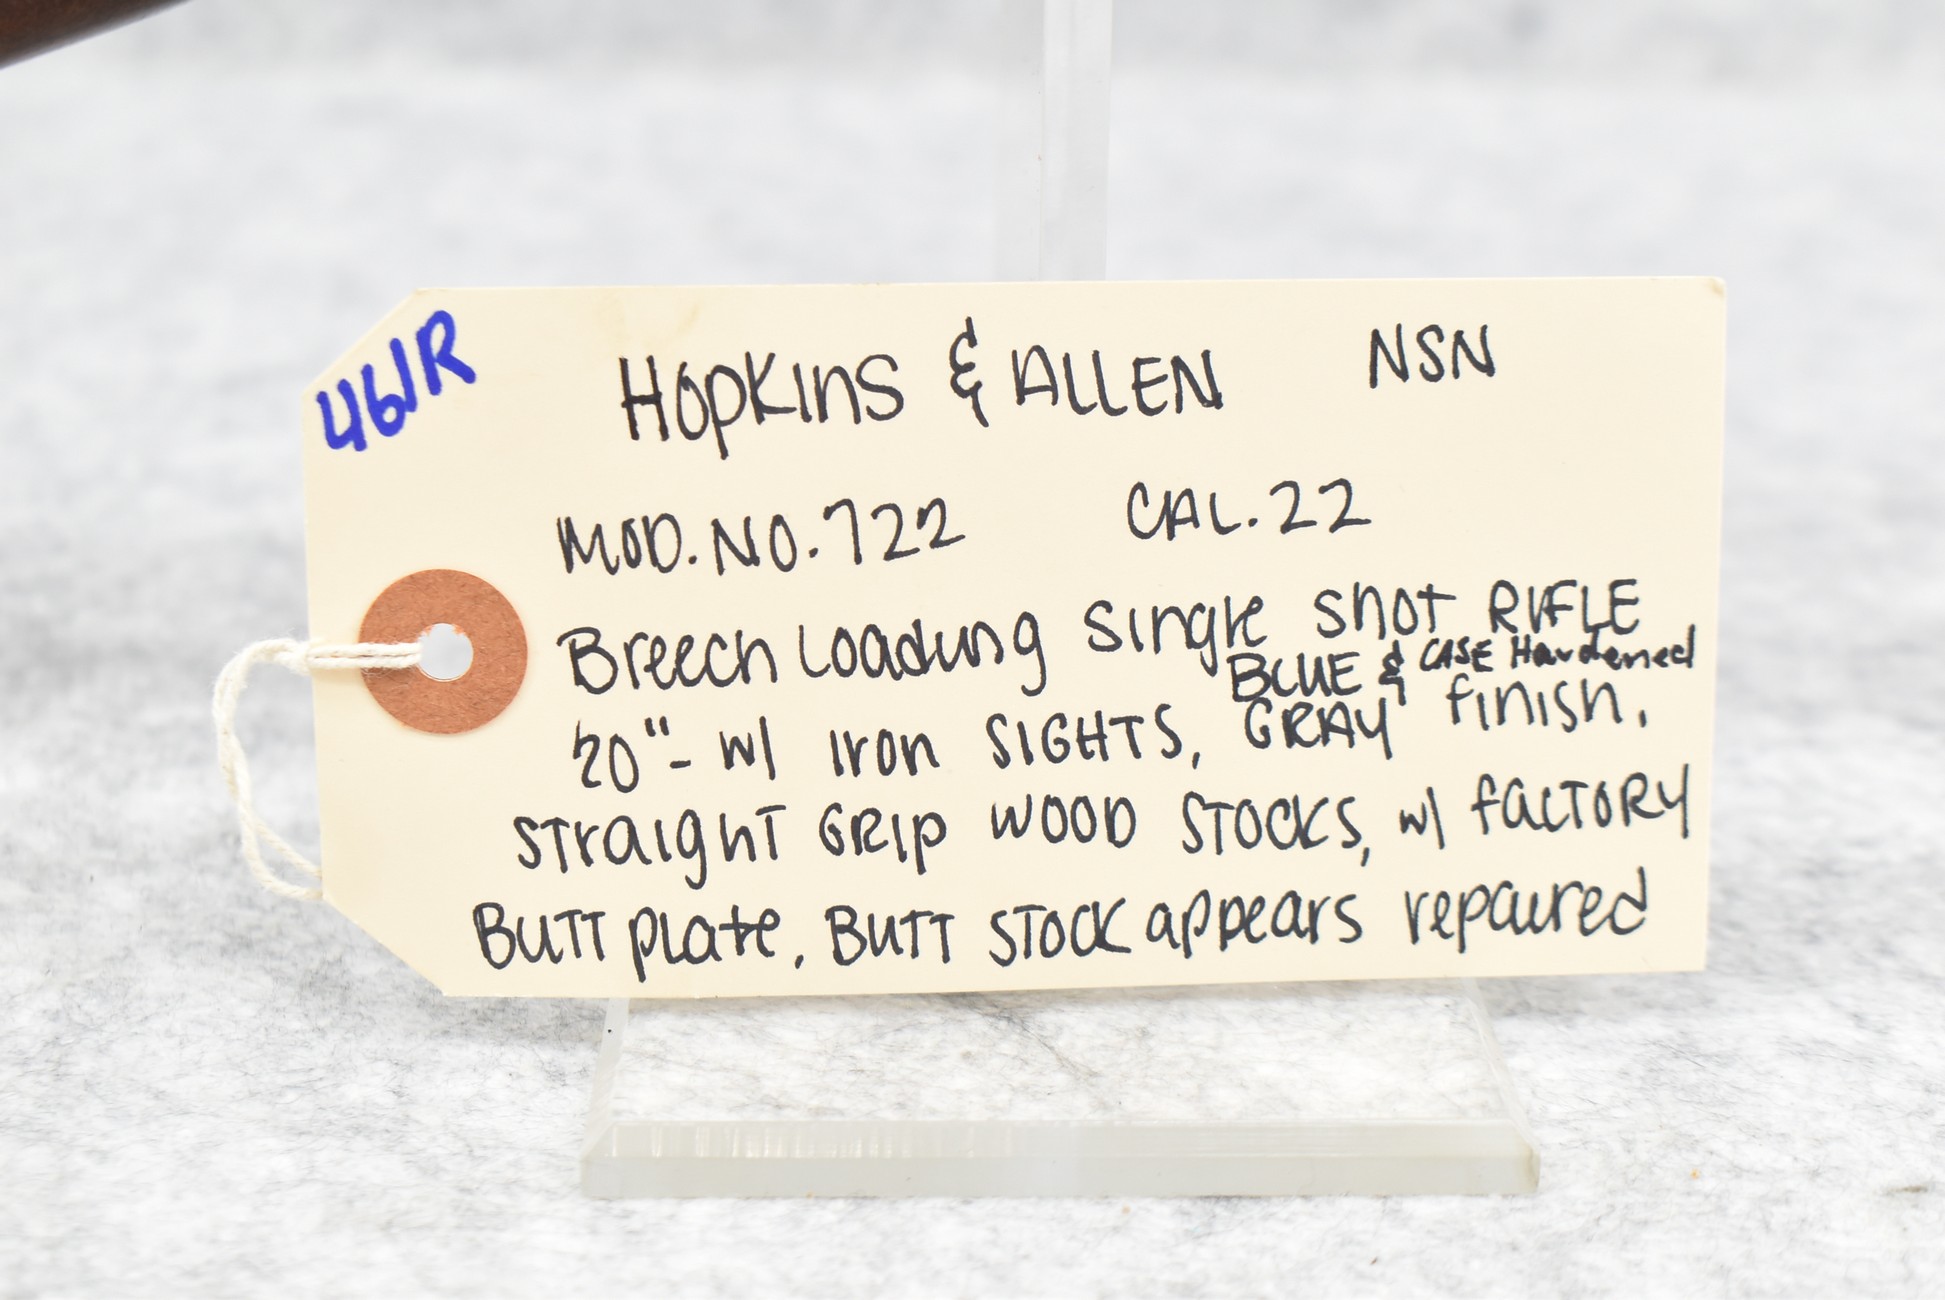 461R
HOPKINS & ALLEN NSN
MOD. NO. 722 CAL. 22
Breech Loading Single Shot RIFLE
BLUE & CASE Hardened
20"- w/ Iron SIGHTS, GRAY finish.
Straight GRIP WOOD STOCKS, w/ factory
Butt plate. Butt stock appears repaired